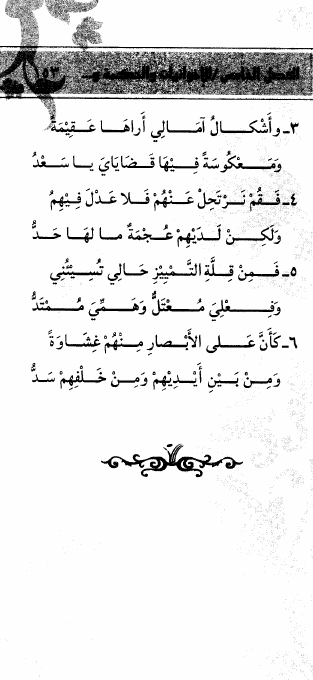 الفصل الخامس/الإخوانيات والحكمة و... ٥٣
٣ـ وأَشْكَـــالُ آمَـالِي أَراهَـا عَـقِيْمَةٌ
وَمَـعْكُوسَةً فِيْـهَا قَـضَايَايَ يـا سَـعْدُ
٤ـ فَـقُمْ نَـرْتَحِلْ عَنْـهُمْ فَـلا عَـدْلَ فِيْهِمُ
وَلَكِـنْ لَدَيْهِمْ عُجْمَةٌ ما لهَا حَـدُّ
٥ـ فَـمِنْ قِلَّةِ التَّمْيِيْزِ حَالِي تُسِيْئُنِي
وَفِـعْلِيَ مُـعْتَلٌّ وَهَـمِّيَ مُـمْتَدُّ
٦ـ كَأَنَّ عَـلى الأَبْصارِ مِنْـهُمْ غِشَـاوَةً
وَمِـنْ بَـيْنِ أَيْـدِيْهِمْ وَمِـنْ خَـلْفِهِمْ سَـدُّ